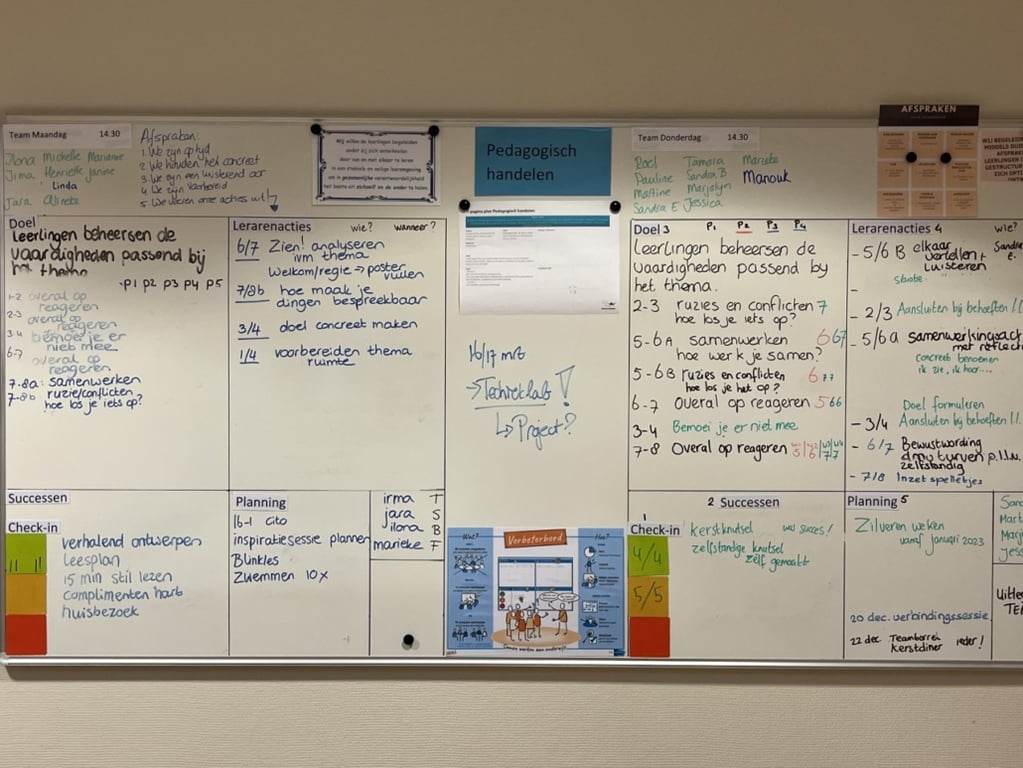 Team Maandag 14.30
Ilona Michelle Marienne
Jima Henriëlle Janine
Linda
Jara Alineke
Afspraken:
1. We zijn op tijd
2. We houden het concreet
3. We zijn een luisterend oor
4. We zijn voorbereid
5. We voeren onze acties uit
Wij willen de leerlingen begeleiden
zodat zij zich ontwikkelen
door van en met elkaar te leren
in een stabiele en veilige leeromgeving
om in gezamenlijke verantwoordelijkheid
het beste uit zichzelf en de ander te halen.
Doel
Leerlingen beheersen de
vaardigheden passend bij
het thema
P1 P2 P3 P4 P5
1-2 overal op
reageren
2-3 overal op
reageren
3-4 bemoei je er
niet mee
6-7 overal op
reageren
7-8a: samenwerken
7-8b ruzie/conflicten
hoe los je iets op?
Lerarenacties wie? wanneer?
6/7 Zien! analyseren
ivm thema
Welkom/regie → poster
vullen
7/8b hoe maak je
dingen bespreekbaar
3/4 doel concreet maken
1/4 voorbereiden thema
ruimte
Successen
Check-in
verhalend ontwerpen
Leesplan
15 min stil lezen
complimenten hart
huisbezoek
Planning
16-1 cito
inspiratiesessie plannen
Blinkles
Zwemmen 10x
irma T
jara S
ilona B
marieke F
Pedagogisch
handelen
pagina plan Pedagogisch handelen
16/17 mrt
→ Technieklab!
↳ Project?
Wat? Verbeterbord Hoe?
Samen werken aan onderwijs
Team Donderdag 14.30
Roel Tamara Marieke
Pauline Sandra B Manouk
Martine Marjolyn
Sandra E Jessica
AFSPRAKEN
WIJ BEGELEIDEN
MIDDELS
AFSPRAKEN
LEERLINGEN
GESTRUCTUREERD
ZICH OPTIMAAL
Doel 3 P1 P2 P3 P4
Leerlingen beheersen de
vaardigheden passend by
het thema.
2-3 ruzies en conflicten 7
hoe los je iets op?
5-6A samenwerken 6 6 7
hoe werk je samen?
5-6B ruzies en conflicten 6 7 7
hoe los je het op?
6-7 Overal op reageren 5 6 6
3-4 Bemoei je er niet mee
7-8 Overal op reageren
Lerarenacties 4 wie?
- 5/6 B elkaar
vertellen +
luisteren
- 2/3 Aansluiten bij behoeften
- 5/6a samenwerkingsact
met reflec
concreet benoemen
ik zie, ik hoor....
Doel formuleren
- 3/4 Aansluiten bij behoeften
- 6/7 Bewustwording
dmv turven p.l.l.n.
zelfstandig
- 7/8 Inzet spelletjes
1
Check-in
4/4
5/5
2 Successen
kerstknutsel succes!
zelfstandige knutsel
zelf gemaakt
Planning 5
Zilveren weken
vanaf januari 2023
20 dec. verbindingssessie
22 dec Teamborrel ieder!
kerstdiner